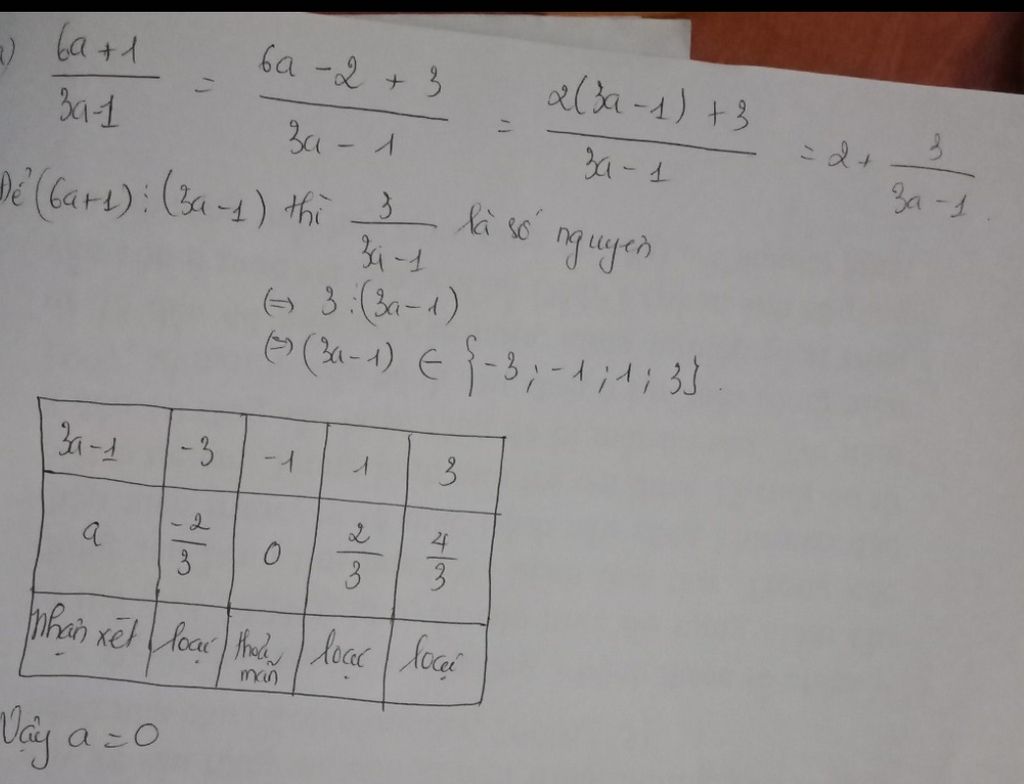 a) 6a+1 / 3a-1 = 6a - 2 + 3 / 3a - 1 = 2(3a-1) + 3 / 3a - 1 = 2 + 3 / 3a-1.
Để (6a+1)⋮(3a-1) thì 3 / 3a-1 là số nguyên
⇔ 3⋮(3a-1)
⇔ (3a-1) ∈ {-3; -1; 1; 3}.
3a-1 -3 -1 1 3
a -2/3 0 2/3 4/3
nhận xét loại thoả mãn loại loại
Vậy a = 0